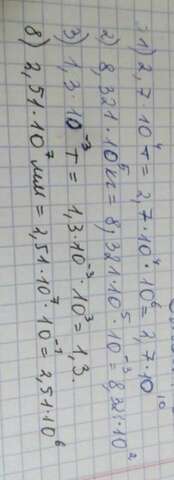 1) 2,7·10⁴ т = 2,7·10⁴·10⁶ = 2,7·10¹⁰
2) 8,321·10⁵ кг = 8,321·10⁵·10⁻³ = 8,321·10²
3) 1,3·10⁻³ т = 1,3·10⁻³·10³ = 1,3.
8) 2,51·10⁷ мм = 2,51·10⁷·10⁻¹ = 2,51·10⁶